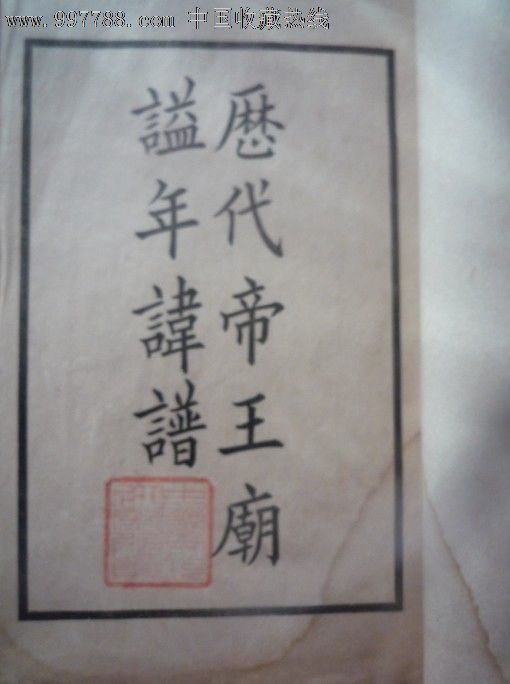 www.997788.com 中国收藏热线
歴代帝王廟
謚年諱譜